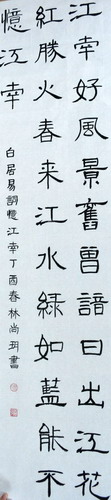 江南好風景舊曾諳日出江花
紅勝火春來江水綠如藍能不
憶江南
白居易詞憶江南丁酉春林尚書